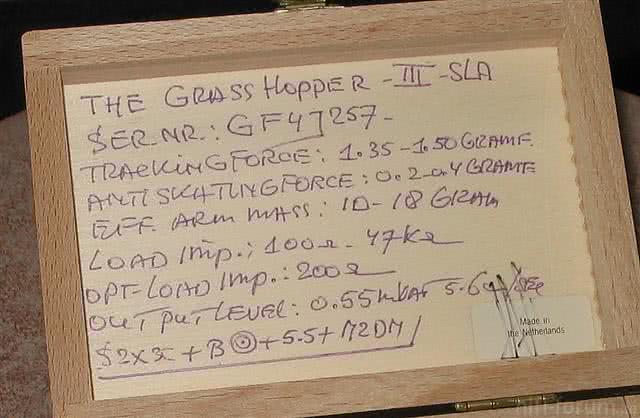 THE GRASSHOPPER -III-SLA
SER.NR.: GF47257-
TRACKING FORCE: 1.35-1.50 GRAME
ANTI SKATING FORCE: 0.2-0.4 GRAME
EFF. ARM MASS: 10-18 GRAM
LOAD Imp.: 100Ω-47KΩ
OPT-LOAD Imp.: 200Ω
OUTPUT LEVEL: 0.55 AT 5.6
+ B + 5.5 +
Made in
the Netherlands